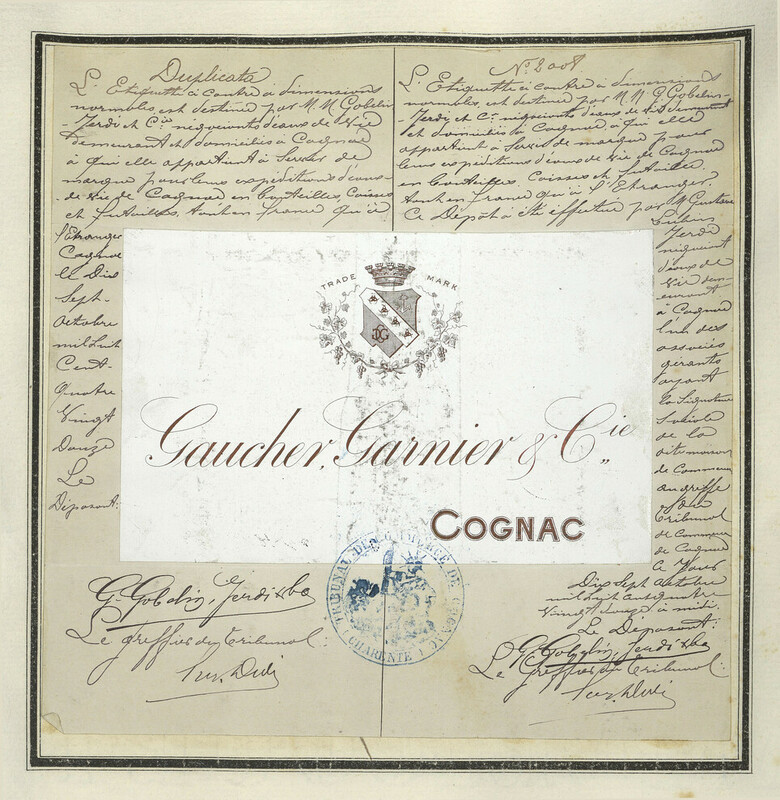 Duplicata
L'Etiquette ci contre à dimensions
normales, est destinée par M.M. G Gobelin
-Jerdi et Cie négociants d'eaux de Vie
demeurant et domiciliés à Cognac
à qui elle appartient à servir de
marque pour leurs expéditions d'eaux-
-de Vie de Cognac en bouteilles Caisses
et futailles, tant en france qu'à
l'Etranger
Cognac
le Dix
Sept-
Octobre
mil huit
Cent-
Quatre
Vingt
Douze
Le
Déposant:
G. Gobelin, Jerdi &
Le greffier du Tribunal:
No 2008
L'Etiquette ci contre à dimensions
normales, est destinée par M.M. G Gobelin-
-Jerdi et Cie négociants d'eaux de Vie demeurant
et domiciliés à Cognac à qui elle
appartient à servir de marque pour
leurs expéditions d'eaux de Vie de Cognac
en bouteilles Caisses et futailles.
tant en france qu'à l'Etranger.
Ce Dépôt a été effectué par M. Gustave
Jerdi
négociant
d'eaux de
Vie dem-
eurant
à Cognac
l'un des
associés
gérants
ayant
la Signature
Sociale
de la
dite maison
de Commerce
au greffe
du
Tribunal
de Commerce
de Cognac
ce Jour
Dix Sept Octobre
mil huit cent quatre
Vingt douze à midi.
Le Déposant:
G. Gobelin, Jerdi &
Le greffier du Tribunal:
TRADE MARK
GG
Gaucher, Garnier & Cie,,
COGNAC
TRIBUNAL DE COMMERCE DE COGNAC
(CHARENTE)